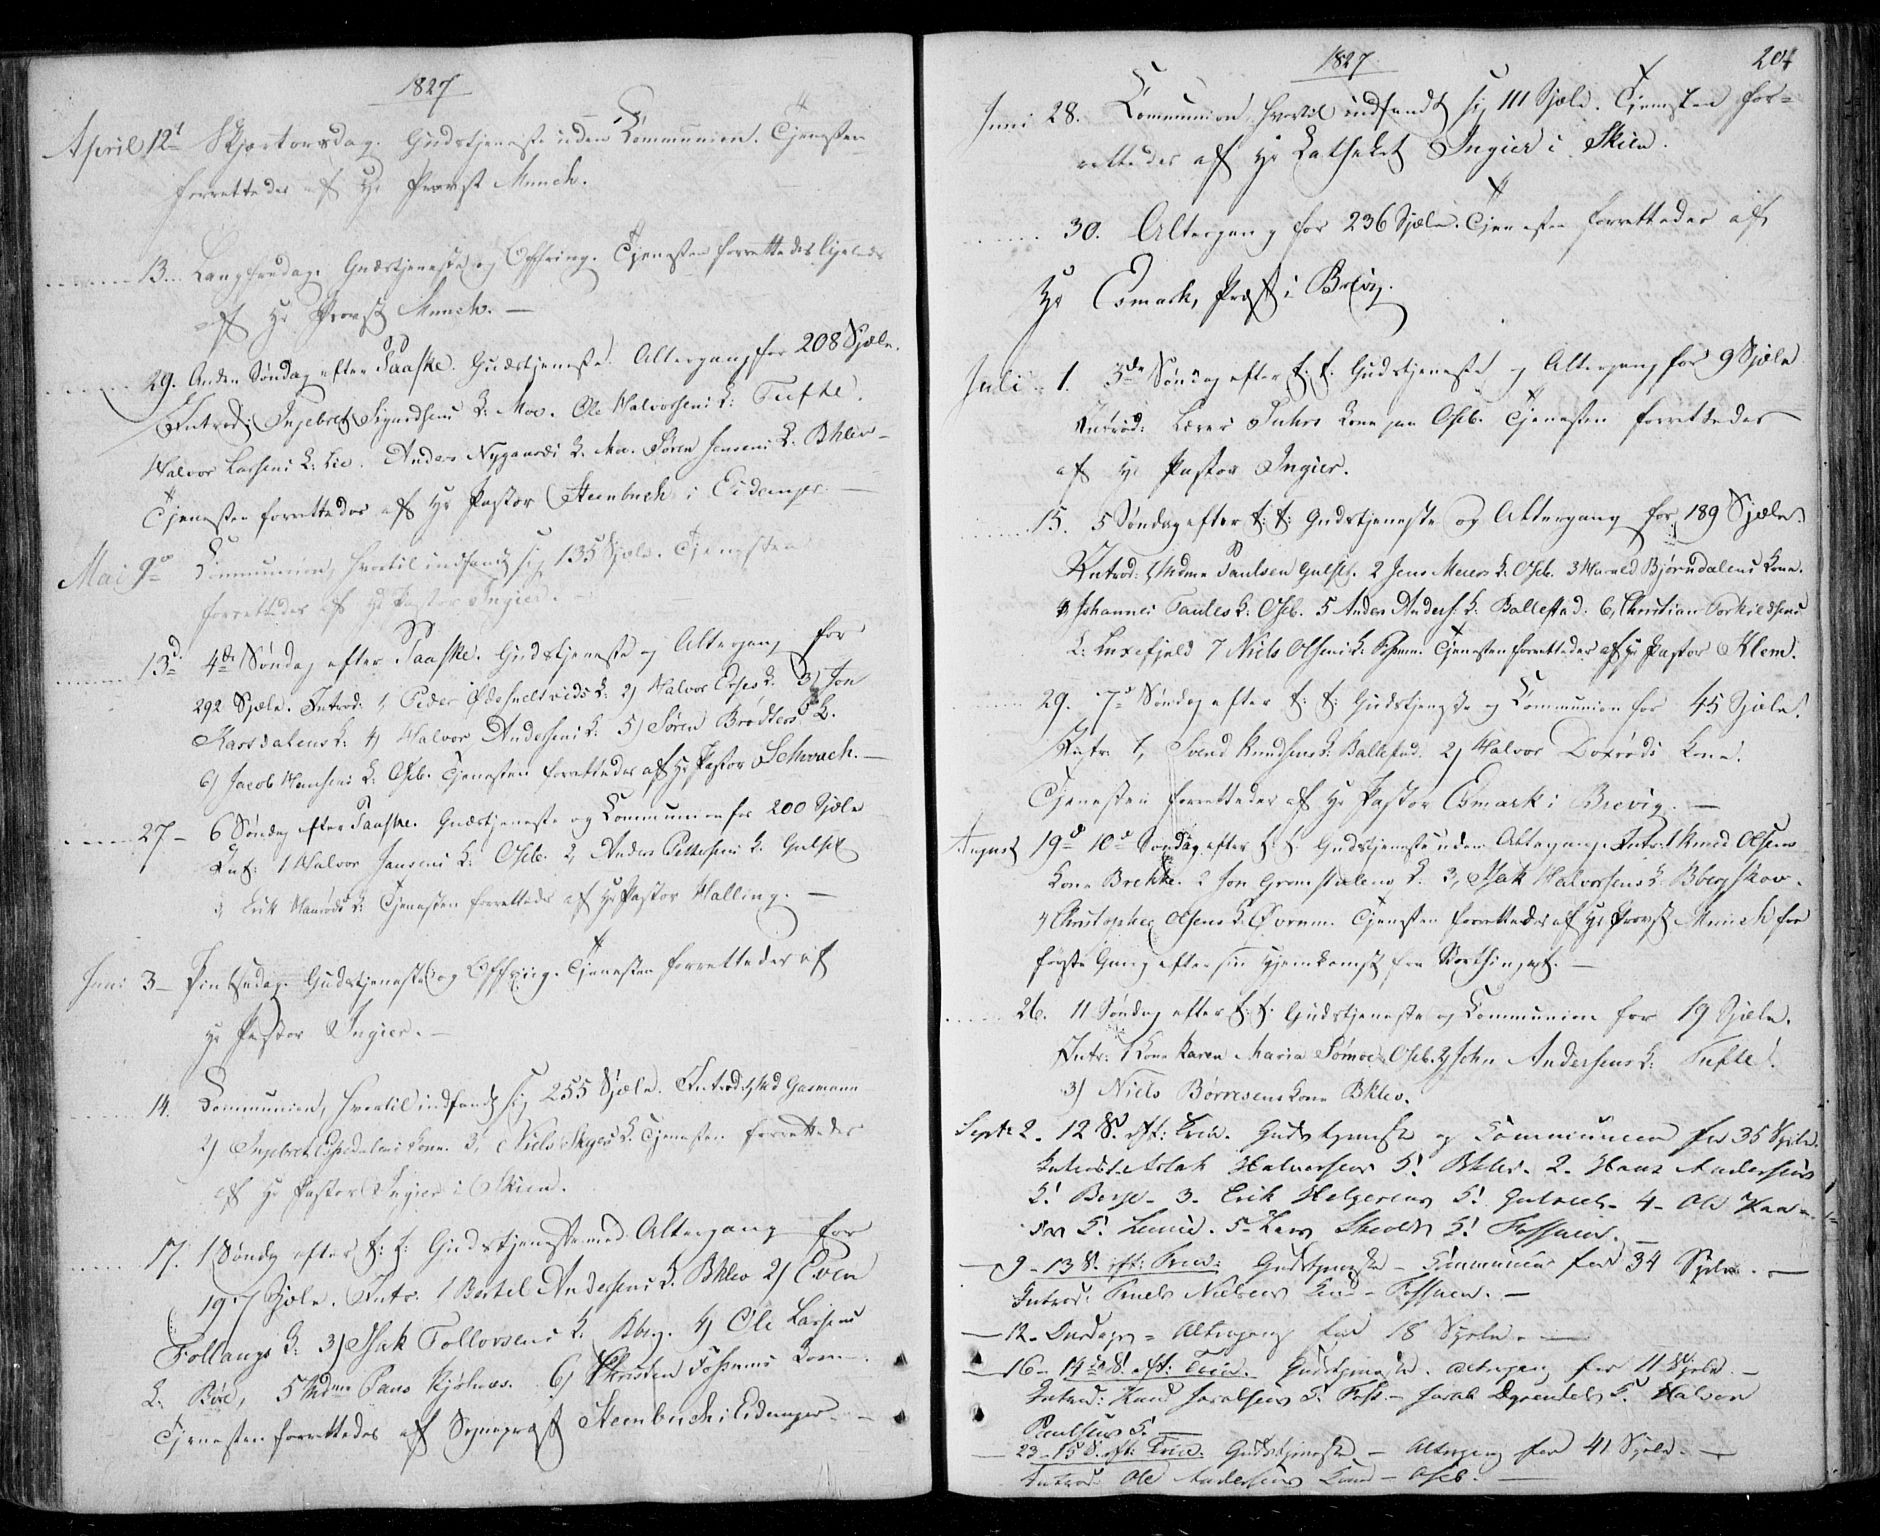 1827
April 12t Skjertorsdag. Gudstjeneste uden Communion. Tjenesten
forrettedes af Hr Provst Munch.
13. Langfredag. Gudstjeneste og Offring. Tjenesten forrettedes ligeledes
af Hr Provst Munch. —
29. Anden Søndag efter Paaske. Gudstjeneste. Altergang for 208 Sjæle.
Introd: Ingebret Sigurdsens K: Moe. Ole Halvorsens K: Tufte.
Halvor Larsens K: Lie. Anders Nygaards K. Moe. Søren Jensens K. Bklev —
Tjenesten forrettedes af Hr Pastor Steenbuch i Eidanger. —
Mai 9de Communion, hvortil indfandt sig 135 Sjæle. Tjenesten
forrettedes af Hr Pastor Ingier. —
13d. 4de Søndag efter Paaske. Gudstjeneste og Altergang for
292 Sjæle. Introd: 1, Peder Ødesneltvids K: 2) Halvor K. 3) Jon
K: 4) Halvor Andersens K: 5) Søren Brødsters K.
6) Jacob Hansens K. Oseb. Tjenesten forrettedes af Hr Pastor Schwach. —
27 — 6 Søndag efter Paaske. Gudstjeneste og Communion for 200 Sjæle
Int: 1 Halvor Jansens K. Oseb. 2, Anders Pettersens K. Gulset
3, Erik K: Tjenesten forrettedes af Hr Pastor Halling. —
Juni 3 — Pintsedag. Gudstjeneste og Offring. Tjenesten forrettedes af
Hr Pastor Ingier. —
14. Communion, hvortil indfandt sig 255 Sjæle. Introd: 1, Md Gasmann
2) Ingebret Kone. 3, Niels K. Tjenesten forrettedes
af Hr Pastor Ingier i Skien.
17. 1 Søndag efter t: f: Gudstjeneste med Altergang for
197 Sjæle. Intr: 1 Bertel Andersens K. Bklev 2) Even
Follaugs K: 3) Isak Tollovsens K. Bberg. 4) Ole Larsens
K. Böe, 5 Mdme Paus Kjölnes. 6) Christen Kone —.
Tjenesten forrettedes af Sognepræst Steenbuch i Eidanger. —
1827
204
Juni 28. Communion, hvortil indfandt sig 111 Sjæle. Tjenesten for=
rettedes af Hr Catheket Ingier i Skien.
30. Altergang for 236 Sjæle. Tjenesten forrettedes af
Hr Esmark, Præst i Brevig.
Juli 1. 3de Søndag efter t: f: Gudstjeneste og Altergang for 9 Sjæle
Introd: Lærer Kone paa Oseb. Tjenesten forrettedes
af Hr Pastor Ingier.
15. 5 Søndag efter t: f: Gudstjeneste og Altergang for 189 Sjæle.
Introd: 1, Mdme Paulsen Gulset. 2 Jens Meiers K: Oseb. 3 Harald Bjørndalens Kone.
4 Johannes K: Oseb. 5 Anders Anders. K: Ballestad: 6, Christian Torkildsens
K: Luxefjeld 7 Niels Olsens K. Tjenesten forrettedes af Hr Pastor Klem.
29. 7d Søndag efter t: f: Gudstjeneste og Communion for 45 Sjæle.
Intr: 1, Svend Knudsens K. Ballestad. 2) Halvor Kone.
Tjenesten forrettedes af Hr Pastor Esmark i Brevig. —
August 19d 10d Søndag efter t: f: Gudstjeneste uden Altergang. Intr: 1 Knud Olsens
Kone Brekke. 2 Jon Gromstulens K. 3, Isak Halvorsens K. Bbergskov.
4 Christopher Olsens K. Øvrum. Tjenesten forrettedes af Hr Provst Munch for
første Gang efter sin Hjemkomst fra Storthinget. —
26. 11 Søndag efter t: f: Gudstjeneste og Communion for 19 Sjæle.
Intr: 1 Kone Karen Maria Oseb. 2, John Andersens K: Tufte.
3) Niels Börresens Kone Bklev.
Septr 2. 12 S. eft: Trin. Gudstjeneste og Communion for 35 Sjæle.
Introd: 1. Aslak Halvorsens K: Bklev. 2. Hans Andersens
K: Berge. 3. Erik Helgesens K: Gulset. 4. Ole
K: 5. Lars K: Fossum. —
— 9 — 13 S. eft: Trin: Gudstjeneste — Communion for 34 Sjæle. —
Introd: Truels Nielsens Kone — Fossum. —
— 12. Onsdagen = Altergang for 18 Sjæle. —
— 16 — 14de S. eft: Trin. Gudstjeneste. Altergang for 11 Sjæle. —
Introd: Knud K: Foss. — Jacob K: Halvor
Paulsens K:
— 23 — 15 S. eft: Trin: Gudstjeneste — Altergang for 41 Sjæle. —
Introd: Ole Andersens Kone — Oseb. —